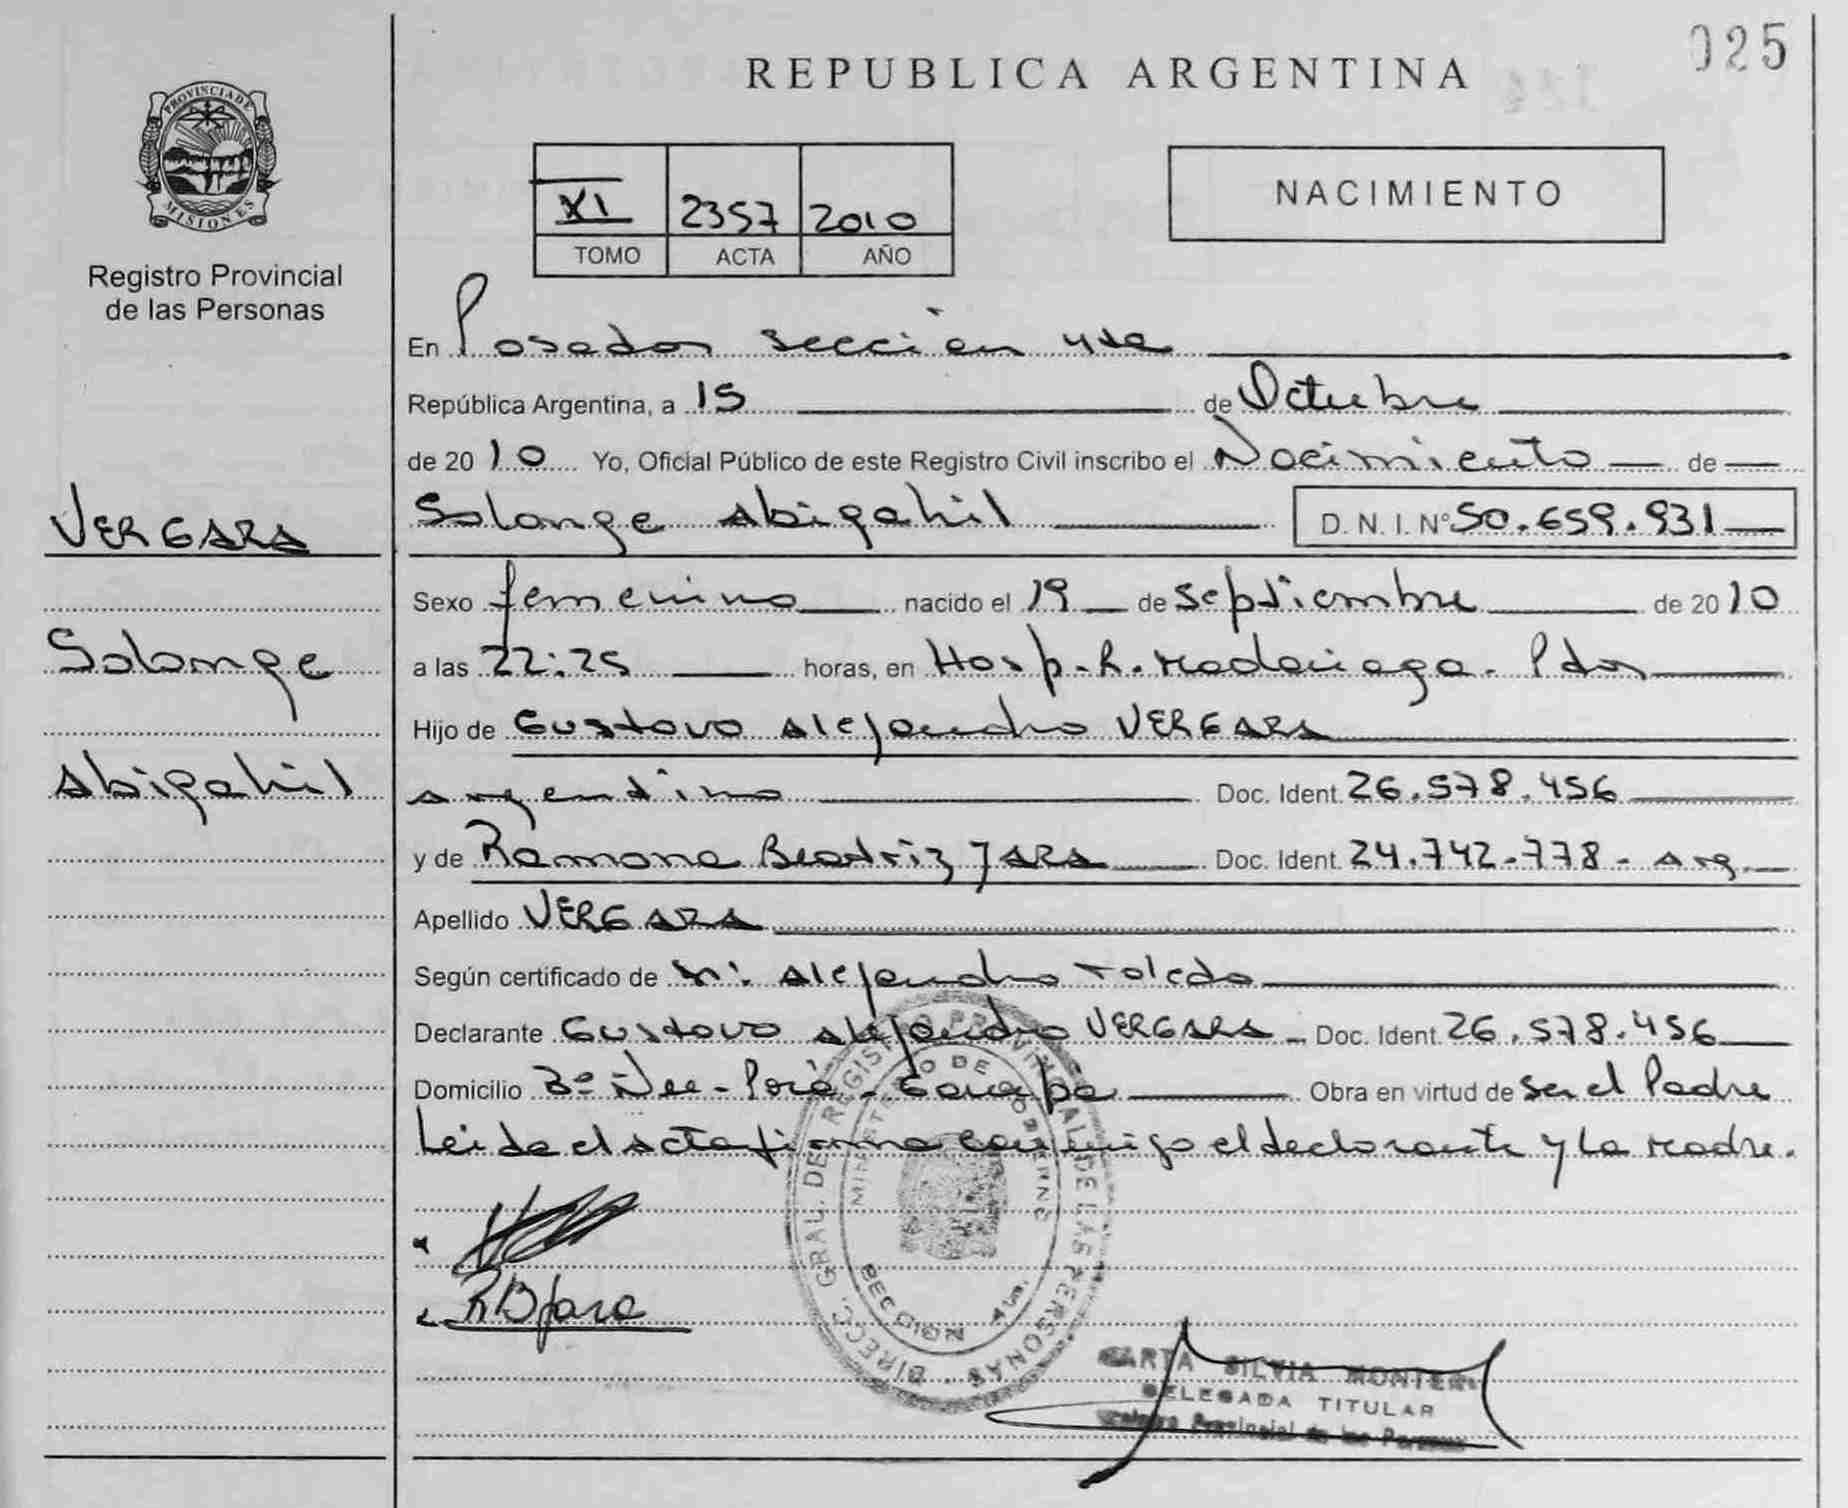 025
REPUBLICA ARGENTINA
PROVINCIA DE
MISIONES
Registro Provincial
de las Personas
XI 2357 2010
TOMO ACTA AÑO
NACIMIENTO
En Posadas sección 4ta
República Argentina, a 15 de Octubre
de 2010 Yo, Oficial Público de este Registro Civil inscribo el Nacimiento de
VERGARA
Solange Abigahil
Solange Abigahil D.N.I. Nº 50.659.931
Sexo femenino nacido el 19 de septiembre de 2010
a las 22:25 horas, en Hosp. R. Madariaga - Pdas
Hijo de Gustavo Alejandro VERGARA
argentino Doc. Ident. 26.578.456
y de Ramona Beatriz JARA Doc. Ident. 24.742.778 - arg.
Apellido VERGARA
Según certificado de Alejandro Toledo
Declarante Gustavo Alejandro VERGARA - Doc. Ident. 26.578.456
Domicilio Bº Ñee-Porá - Garupá Obra en virtud de ser el Padre
Leida el acta firma conmigo el declarante y la madre.
RBJara
DIRECC. GRAL. DEL REGISTRO PROVINCIAL DE LAS PERSONAS
MINISTERIO DE GOBIERNO
SECCION 4ta.
MARTA SILVIA
DELEGADA TITULAR
Provincial de las Personas